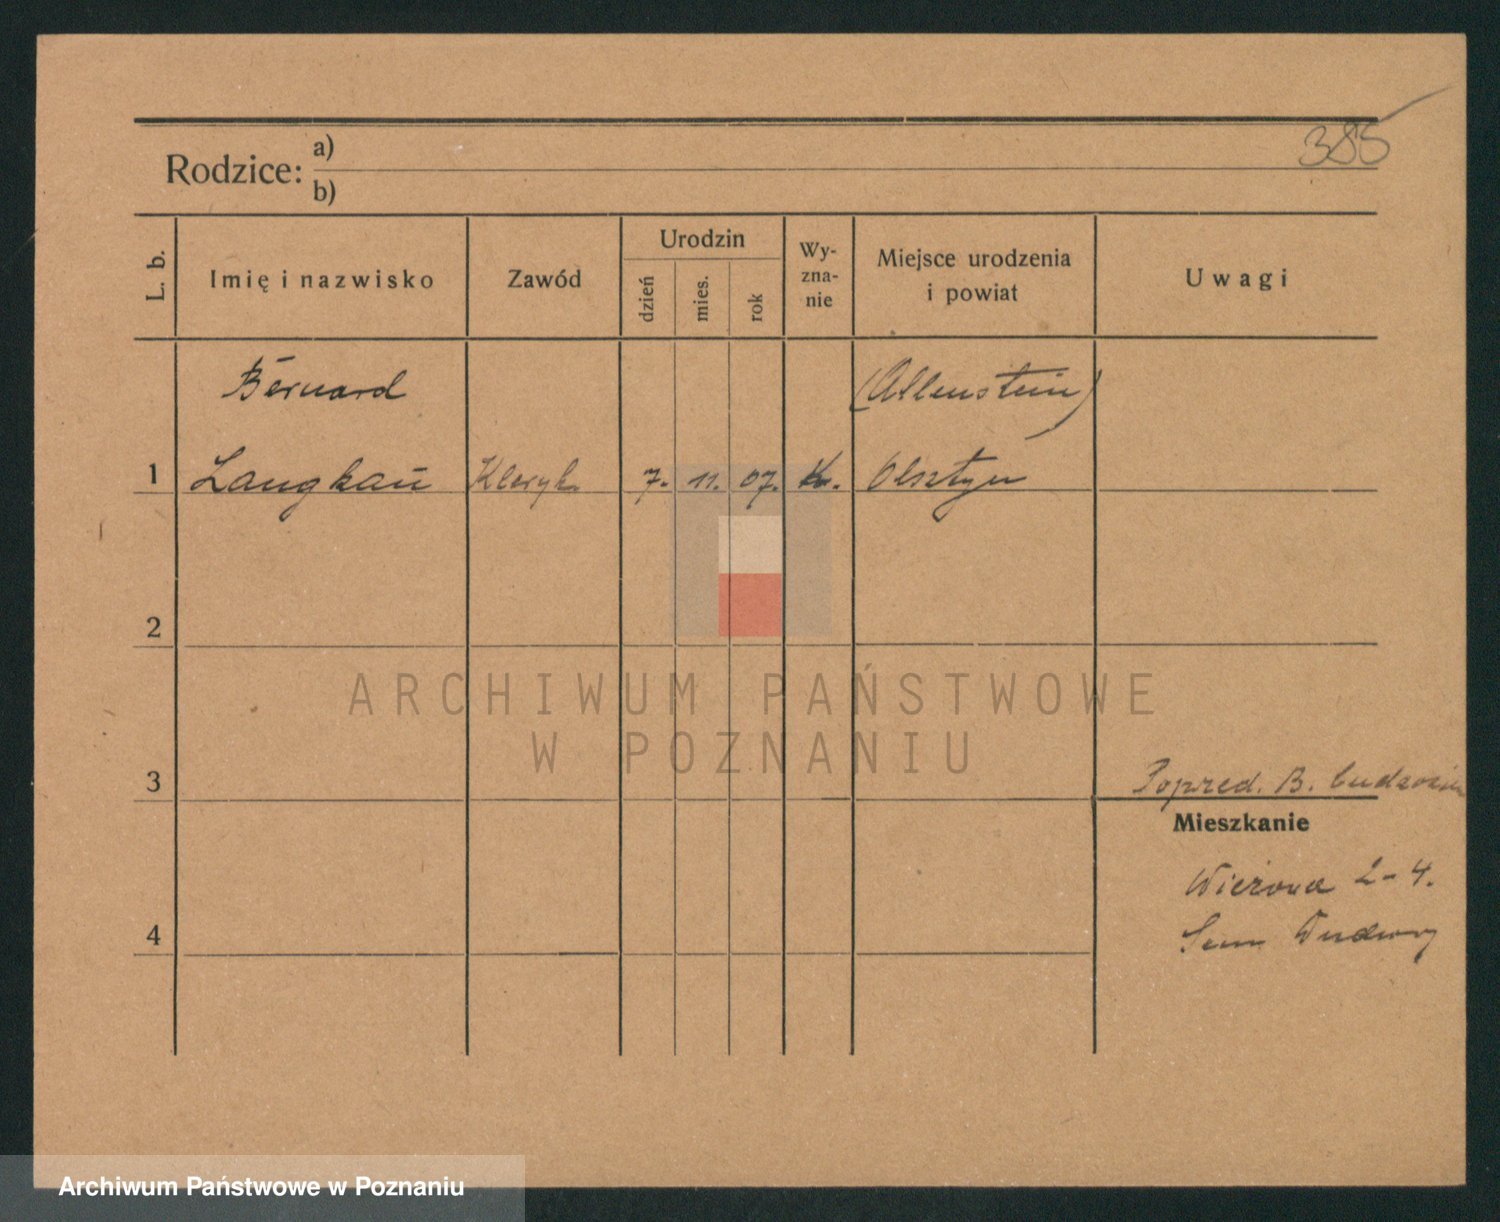 385
Rodzice: a)
b)
L. b.
Imię i nazwisko
Zawód
Urodzin
dzień
mies.
rok
Wy-
zna-
nie
Miejsce urodzenia
i powiat
Uwagi
Bernard
(Allenstein)
1 Langkau Kleryk 7. 11. 07. K. Olsztyn
2
ARCHIWUM PAŃSTWOWE
W POZNANIU
3
Popred. B.
Mieszkanie
Wieżowa 2-4.
4
Sem Duchowny
Archiwum Państwowe w Poznaniu